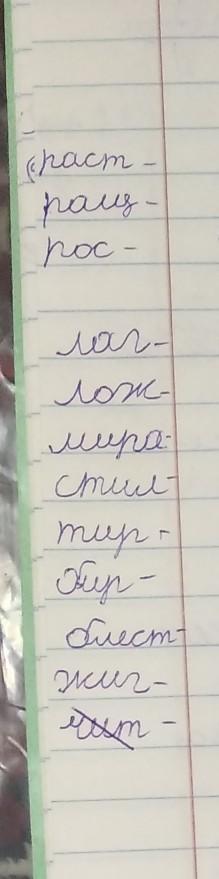 раст -
ращ -
рос -
лаг -
лож -
мира -
стил -
тир -
бир -
блест -
жиг -
чит -